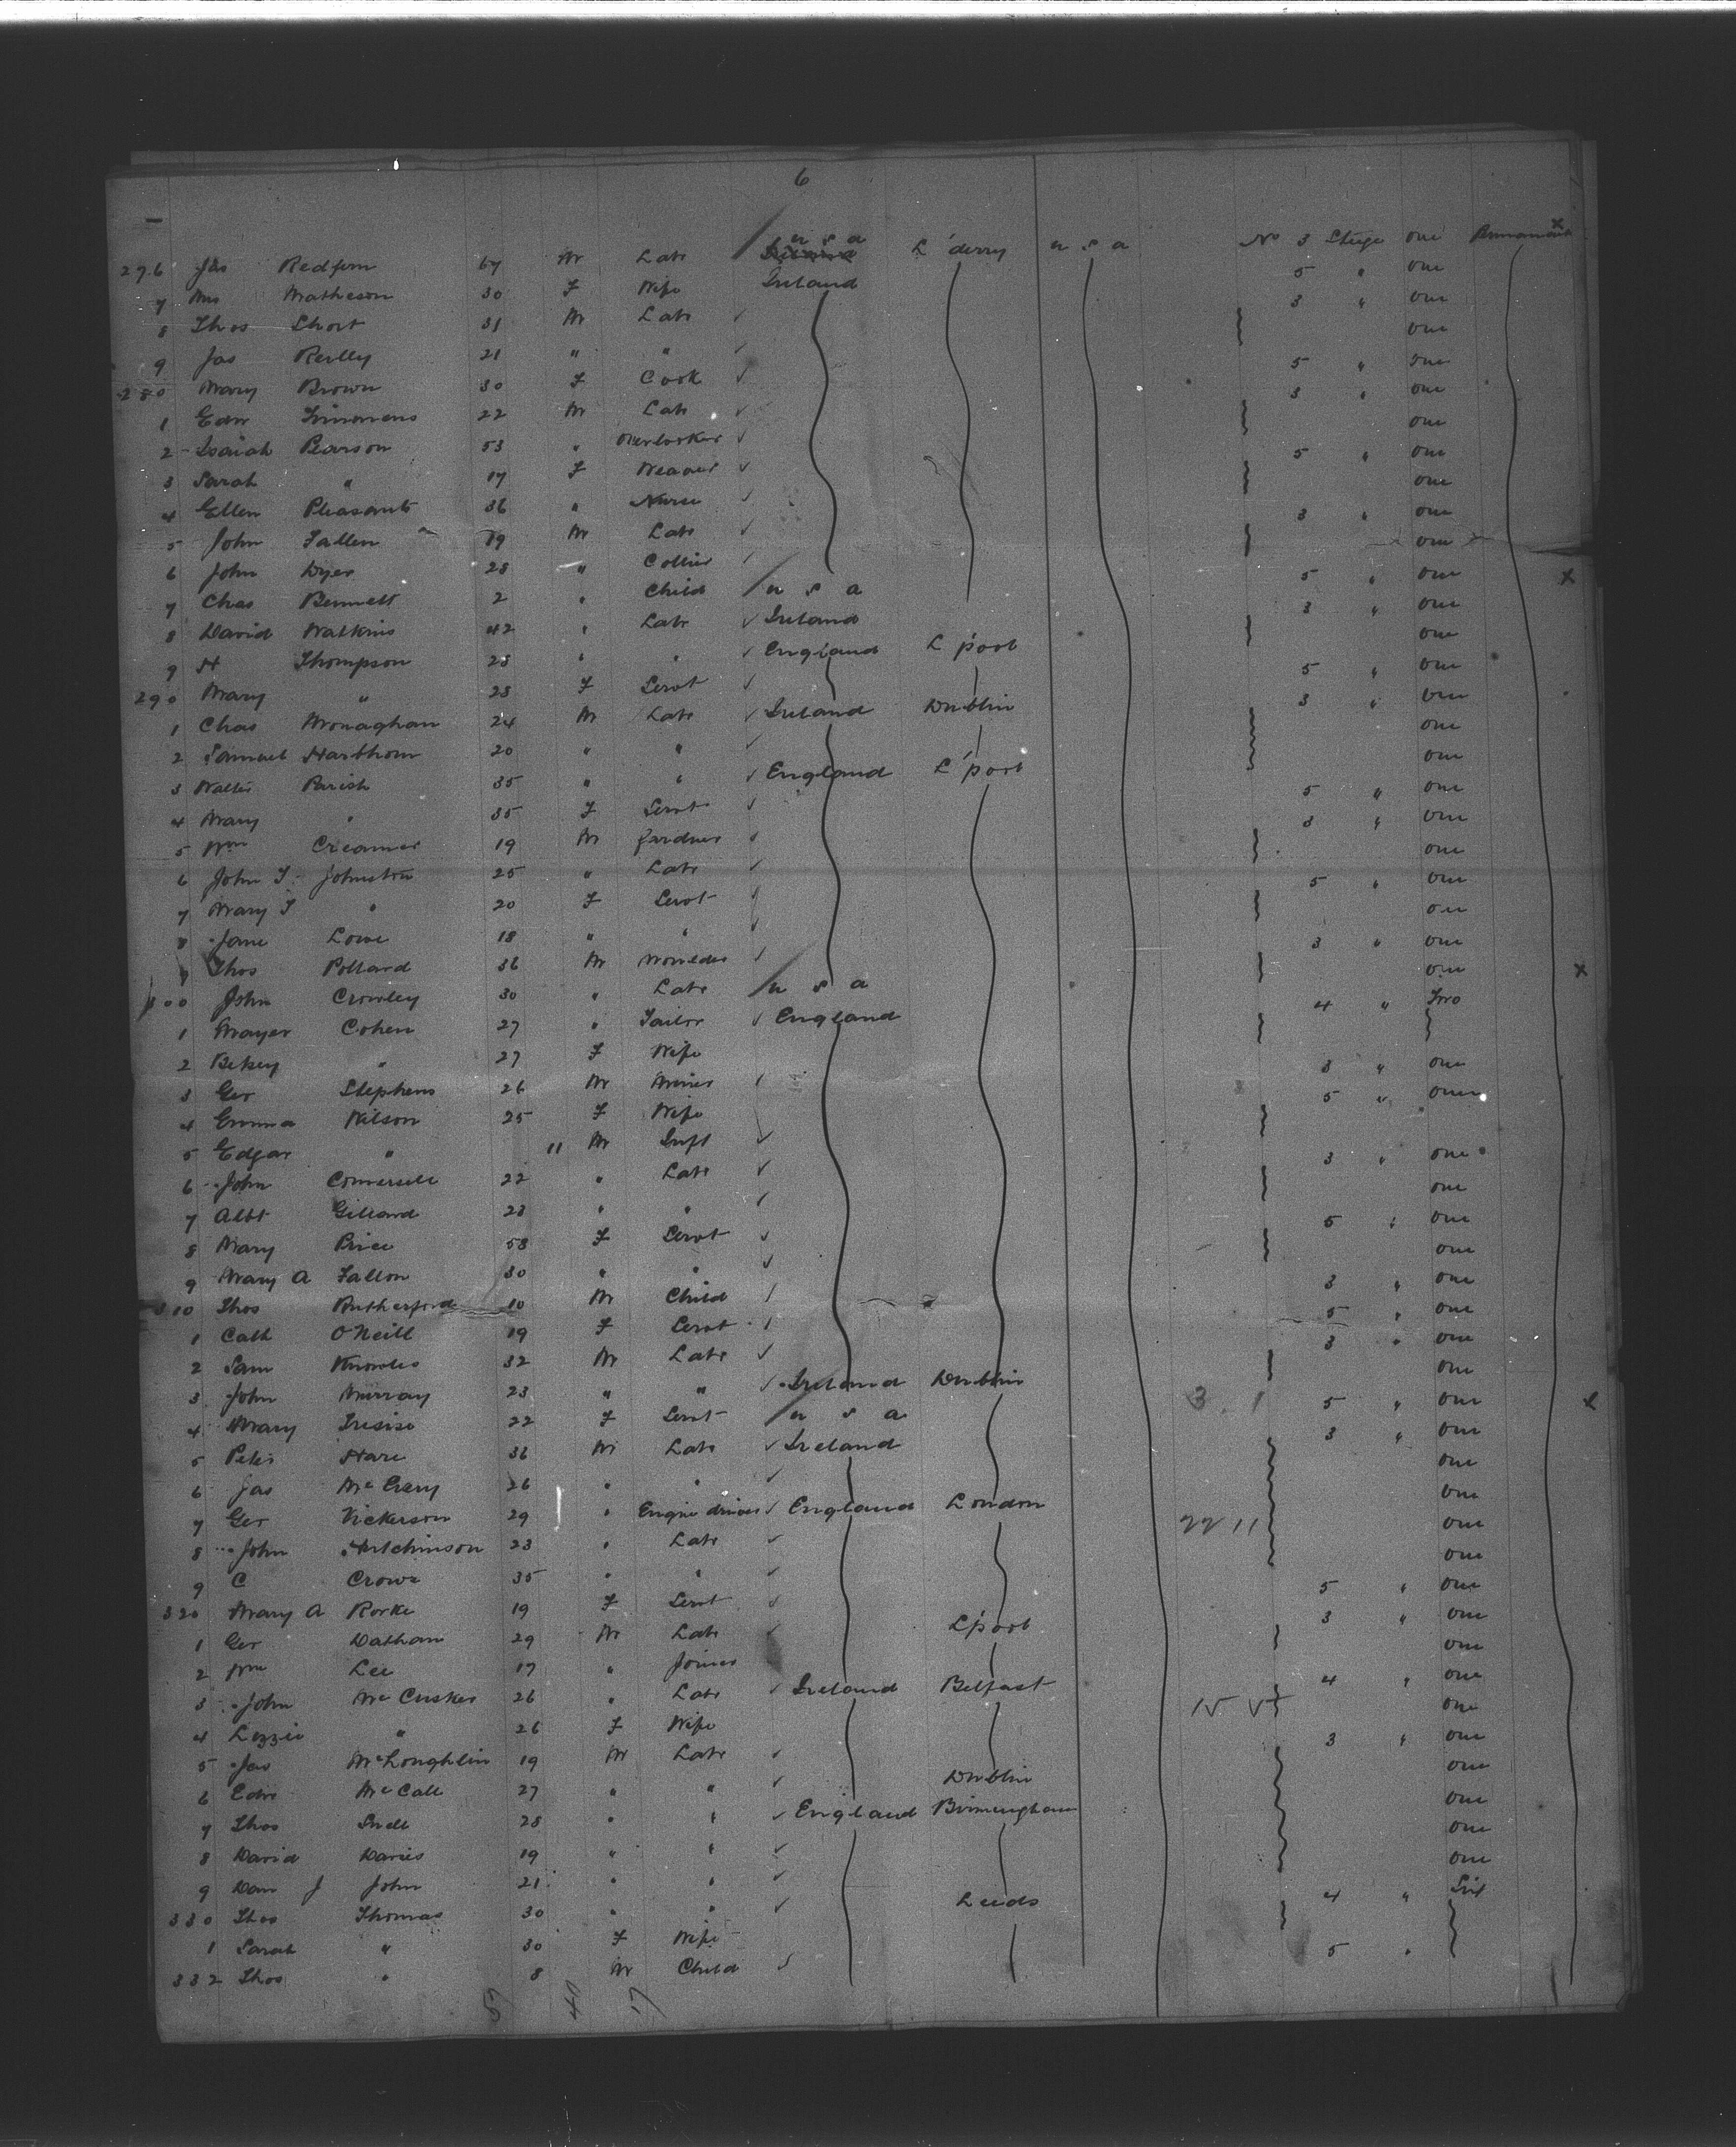 6
276 Jas Redfern 67 M Labr u s a L'derry u s a No 3 Steige one Permanent x
7 Mrs Matheson 30 F Wife Ireland 5 " one
8 Thos Short 31 M Labr ✓ 3 " one
9 Jas Reilly 21 " " ✓ one
280 Mary Brown 30 F Cook ✓ 5 " one
1 Edw Simmons 22 M Labr ✓ 3 " one
2 Isaiah Pearson 53 " Overlooker ✓ one
3 Sarah " 17 F Weaver ✓ 5 " one
4 Ellen Pleasants 36 " Nurse ✓ one
5 John Fallen 19 M Labr ✓ 3 " one
6 John Dyer 28 " Collier ✓ one
7 Chas Bennett 2 " Child u s a 5 " one x
8 David Watkins 42 " Labr ✓ Ireland 3 " one
9 H Thompson 28 " " ✓ England L'pool one
290 Mary " 23 F Servt ✓ 5 " one
1 Chas Monaghan 24 M Labr ✓ Ireland Dublin 3 " one
2 Samuel Harthorn 20 " " ✓ one
3 Walter Parish 35 " " ✓ England L'pool one
4 Mary " 35 F Servt ✓ 5 " one
5 Wm Creamer 19 M Gardner ✓ 3 " one
6 John T Johnston 25 " Labr ✓ one
7 Mary T " 20 F Servt ✓ 5 " one
8 Jane Lowe 18 " " ✓ one
9 Thos Pollard 36 M Moulder ✓ 3 " one
300 John Crowley 30 " Labr u s a one x
1 Mayer Cohen 27 " Tailor ✓ England 4 " Two
2 Betsy " 27 F Wife
3 Geo Stephens 26 M Miner ✓ 3 " one
4 Emma Wilson 25 F Wife 5 " one
5 Edgar " 11 M Inft ✓
6 John Comersell 22 " Labr ✓ 3 " one
7 Albt Gillard 23 " " ✓ one
8 Mary Price 58 F Servt ✓ 5 " one
9 Mary A Fallon 30 " " ✓ one
310 Thos Rutherford 10 M Child ✓ 3 " one
1 Cath O'Neill 19 F Servt ✓ 5 " one
2 Sam Knowles 32 M Labr ✓ 3 " one
3 John Murray 23 " " ✓ Ireland Dublin one
4 Mary 22 F Servt u s a 3 1 5 " one x
5 Peter Hare 36 M Labr ✓ Ireland 3 " one
6 Jas 26 " " ✓ one
7 Geo Vickerson 29 " Engine driver ✓ England London one
8 John Hutchinson 23 " Labr ✓ 22 11 one
9 C Crowe 35 " " ✓ one
320 Mary A Rorke 19 F Servt ✓ 5 " one
1 Geo Datham 29 M Labr ✓ L'pool 3 " one
2 Wm Lee 17 " Joiner one
3 John McCusker 26 " Labr ✓ Ireland Belfast 4 " one
4 Lizzie " 26 F Wife 15 one
5 Jas McLoughlin 19 M Labr ✓ 3 " one
6 Edw McCall 27 " " ✓ Dublin one
7 Thos Snell 28 " " ✓ England Birmingham one
8 David Davies 19 " " ✓ one
9 Dan J John 21 " " ✓ one
330 Thos Thomas 30 " " ✓ Leeds 4 " Six
1 Sarah " 30 F Wife
332 Thos " 8 M Child ✓ 5 "
57 40 17